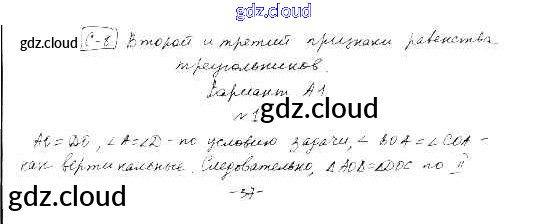 gdz.cloud
gdz.cloud С-8 Второй и третий признаки равенства
треугольников.
Вариант А1
№1 gdz.cloud
АО = DО, ∠А = ∠D - по условию задачи, ∠ВОА = ∠СОА -
как вертикальные. Следовательно, ΔАОВ = ΔDОС по II
gdz.cloud -37- gdz.cloud